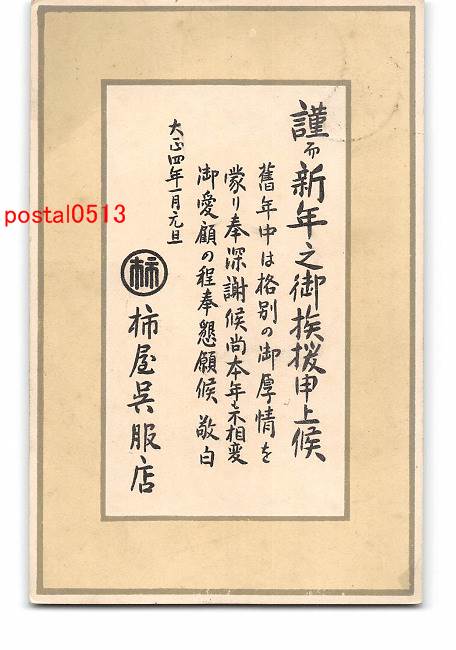 謹而新年之御挨拶申上候
舊年中は格別の御厚情を
蒙り奉深謝候尚本年も不相変
御愛顧の程奉懇願候 敬白
大正四年一月元旦
柿
柿屋呉服店
postal0513